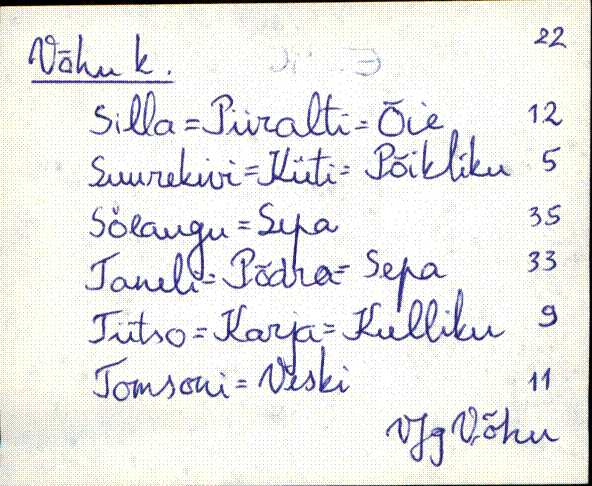 22
Võhu k.
Silla = Püralti = Õie 12
Suurekivi = Küti = Põikliku 5
Söeaugu = Sepa 35
Taneli = Põdra = Sepa 33
Tütso = Karja = Kulliku 9
Tomsoni = Veski 11
VJg Võhu